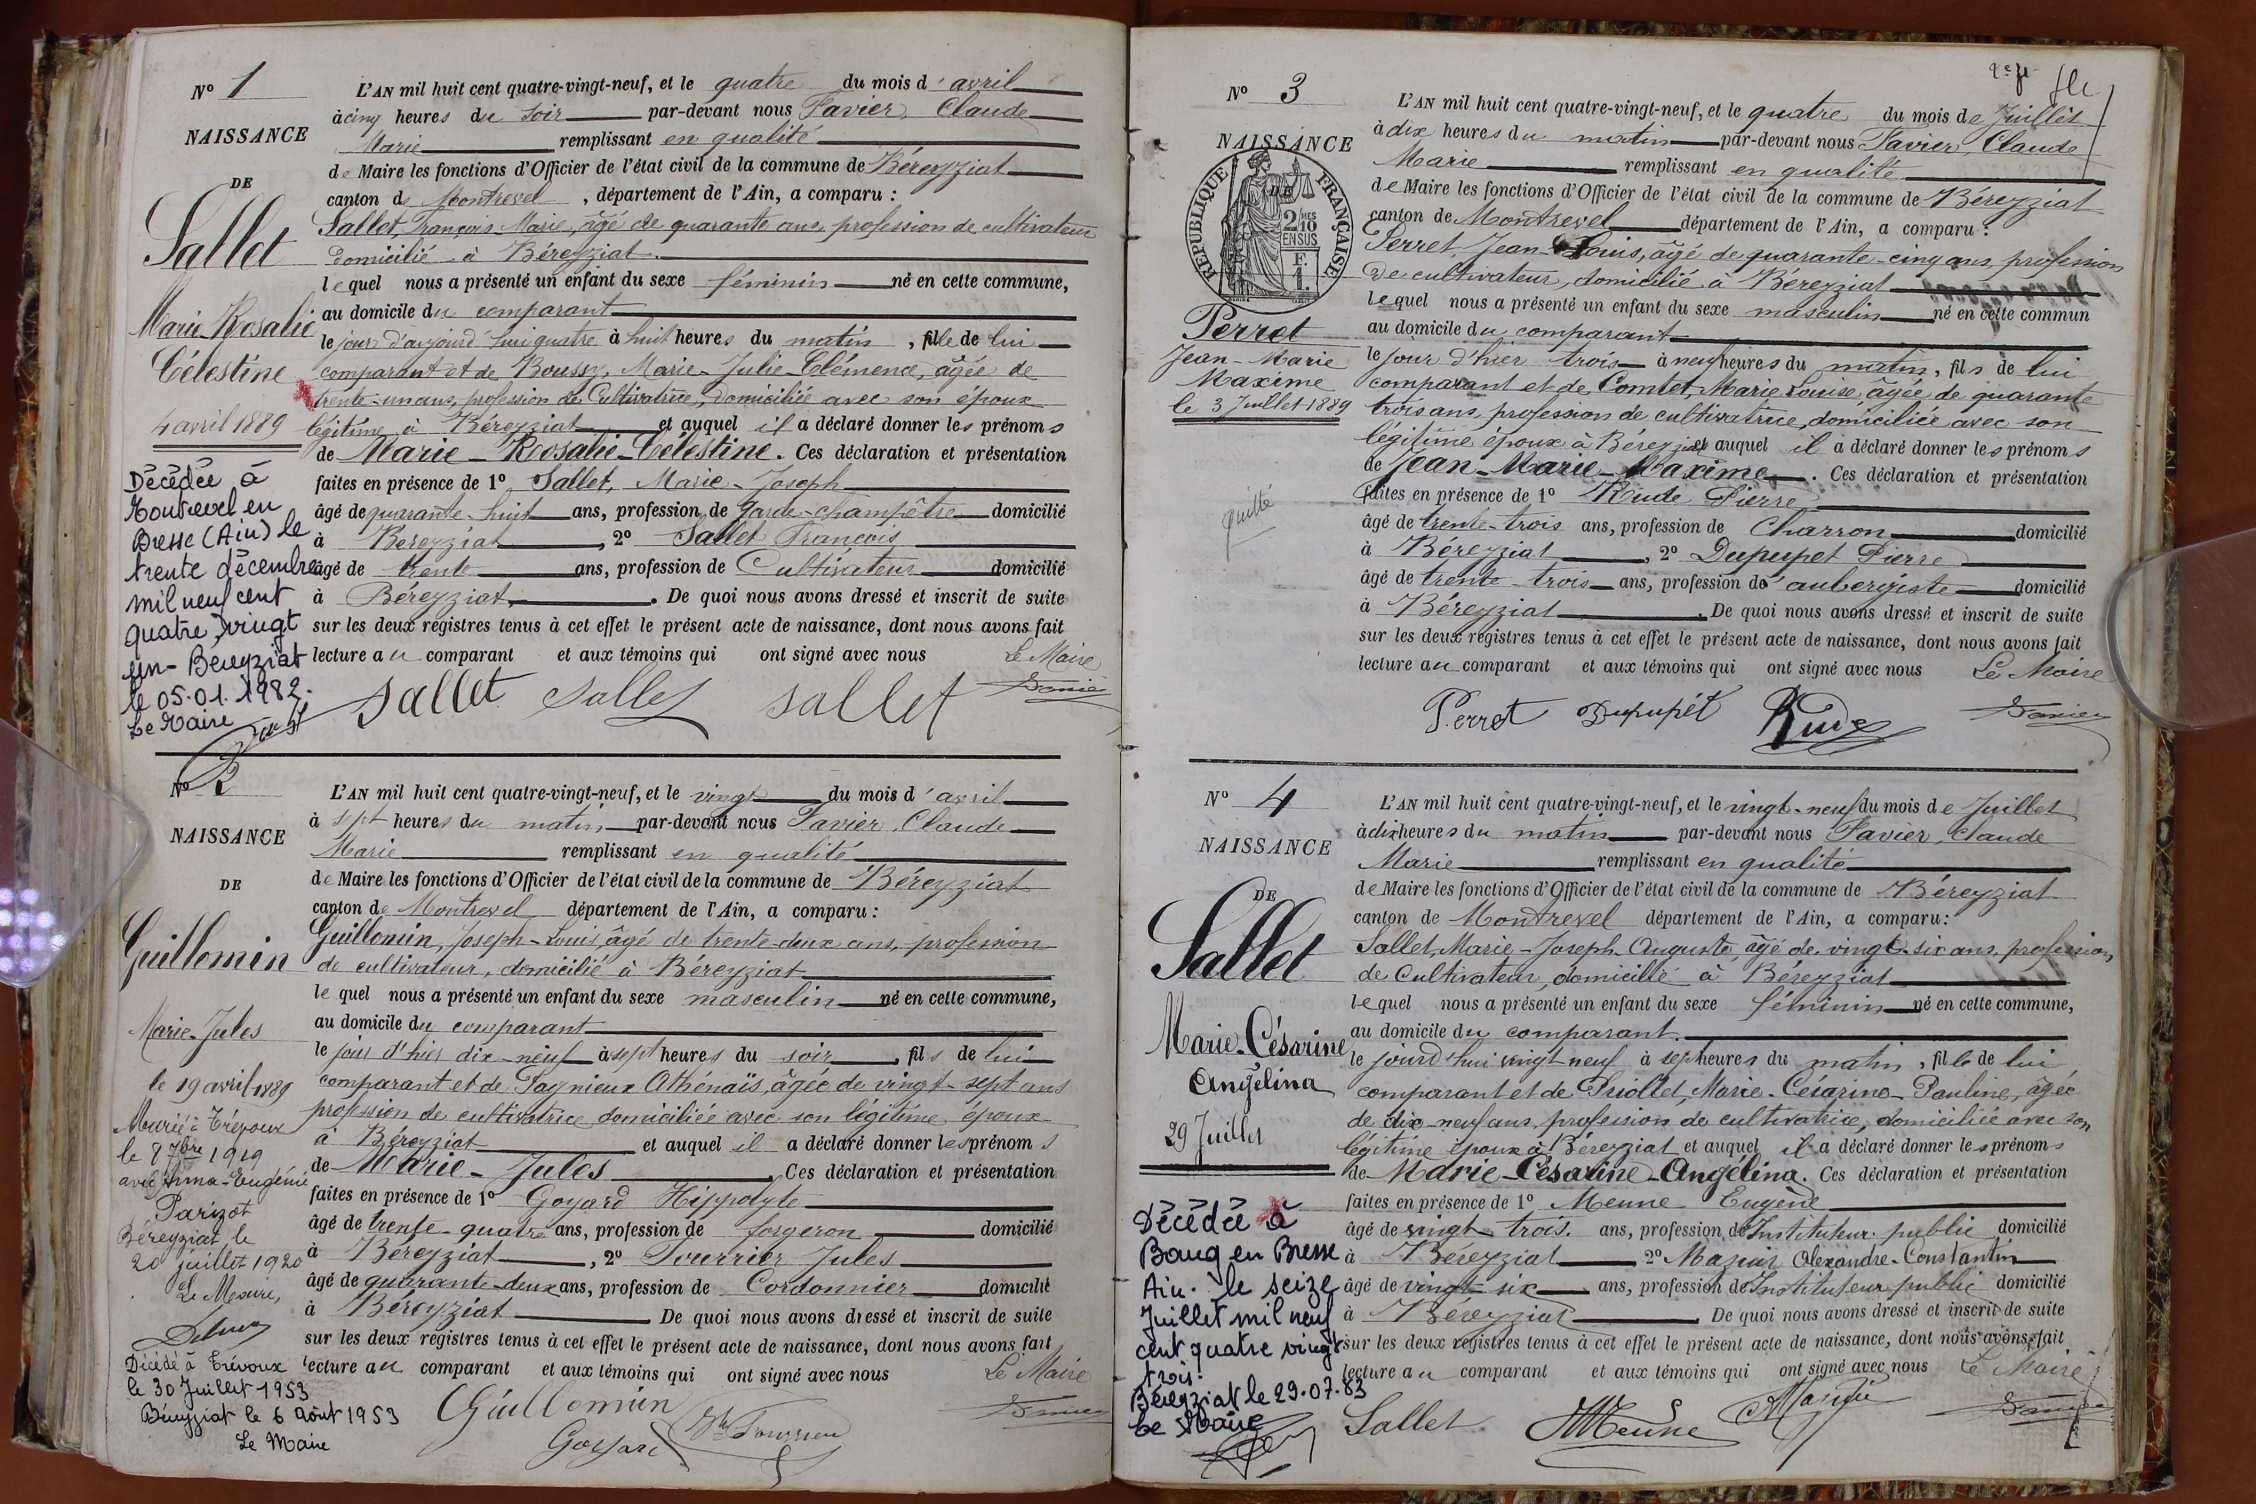 N° 1
NAISSANCE
DE
Sallet
Marie Rosalie
Célestine
4 avril 1889
Décédée à
Montrevel en
Bresse (Ain) le
trente décembre
mil neuf cent
quatre vingt
un - Béreyziat
le 05.01.1982.
Le Maire
L'AN mil huit cent quatre-vingt-neuf, et le quatre du mois d'avril
à cinq heures du soir par-devant nous Favier, Claude
Marie remplissant en qualité
de Maire les fonctions d'Officier de l'état civil de la commune de Béreyziat
canton de Montrevel, département de l'Ain, a comparu :
Sallet, François Marie, âgé de quarante ans, profession de cultivateur
domicilié à Béreyziat.
lequel nous a présenté un enfant du sexe féminin né en cette commune,
au domicile du comparant
le jour d'aujourd'hui quatre à huit heures du matin, fille de lui
comparant et de Boussy, Marie-Julie-Clémence, âgée de
trente-un ans, profession de Cultivatrice, domiciliée avec son époux
légitime à Béreyziat et auquel il a déclaré donner les prénoms
de Marie-Rosalie-Célestine. Ces déclaration et présentation
faites en présence de 1° Sallet, Marie-Joseph
âgé de quarante-huit ans, profession de Garde-champêtre domicilié
à Béreyziat, 2° Sallet François
âgé de trente ans, profession de Cultivateur domicilié
à Béreyziat. De quoi nous avons dressé et inscrit de suite
sur les deux registres tenus à cet effet le présent acte de naissance, dont nous avons fait
lecture au comparant et aux témoins qui ont signé avec nous Le Maire
Sallet Sallet Sallet Favier
N° 2
NAISSANCE
DE
Guillomin
Marie-Jules
le 19 avril 1889
Marié à Trévoux
le 8 7bre 1919
avec Anna-Eugénie
Parizot
Béreyziat le
20 juillet 1920
Le Maire,
Décédé à Trévoux
le 30 Juillet 1953
Béreyziat le 6 Août 1953
Le Maire
L'AN mil huit cent quatre-vingt-neuf, et le vingt du mois d'avril
à sept heures du matin par-devant nous Favier, Claude
Marie remplissant en qualité
de Maire les fonctions d'Officier de l'état civil de la commune de Béreyziat
canton de Montrevel département de l'Ain, a comparu :
Guillomin, Joseph-Louis, âgé de trente-deux ans, profession
de cultivateur, domicilié à Béreyziat
lequel nous a présenté un enfant du sexe masculin né en cette commune,
au domicile du comparant
le jour d'hier dix-neuf à sept heures du soir, fils de lui
comparant et de Paynieux Athénaïs, âgée de vingt-sept ans
profession de cultivatrice domiciliée avec son légitime époux
à Béreyziat et auquel il a déclaré donner les prénoms
de Marie-Jules. Ces déclaration et présentation
faites en présence de 1° Goyard Hippolyte
âgé de trente-quatre ans, profession de forgeron domicilié
à Béreyziat, 2° Fourrier Jules
âgé de quarante-deux ans, profession de Cordonnier domicilié
à Béreyziat De quoi nous avons dressé et inscrit de suite
sur les deux registres tenus à cet effet le présent acte de naissance, dont nous avons fait
lecture au comparant et aux témoins qui ont signé avec nous Le Maire
Guillomin
Goyard Fourrier Favier
N° 3
NAISSANCE
DE
RÉPUBLIQUE FRANÇAISE
2/10 MES
EN SUS
F.
1.
Perret
Jean-Marie
Maxime
le 3 Juillet 1889
quitté
L'AN mil huit cent quatre-vingt-neuf, et le quatre du mois de Juillet
à dix heures du matin par-devant nous Favier, Claude
Marie remplissant en qualité
de Maire les fonctions d'Officier de l'état civil de la commune de Béreyziat
canton de Montrevel département de l'Ain, a comparu :
Perret, Jean-Louis, âgé de quarante-cinq ans, profession
de cultivateur, domicilié à Béreyziat
lequel nous a présenté un enfant du sexe masculin né en cette commun
au domicile du comparant
le jour d'hier trois à neuf heures du matin, fils de lui
comparant et de Comtet, Marie Louise âgée de quarante
trois ans, profession de cultivatrice, domiciliée avec son
légitime époux à Béreyziat et auquel il a déclaré donner les prénoms
de Jean-Marie-Maxime. Ces déclaration et présentation
faites en présence de 1° Rude Pierre
âgé de trente-trois ans, profession de Charron domicilié
à Béreyziat, 2° Dupupet Pierre
âgé de trente-trois ans, profession d'aubergiste domicilié
à Béreyziat. De quoi nous avons dressé et inscrit de suite
sur les deux registres tenus à cet effet le présent acte de naissance, dont nous avons fait
lecture au comparant et aux témoins qui ont signé avec nous Le Maire
Perret Dupupét Rude Favier
N° 4
NAISSANCE
DE
Sallet
Marie-Césarine
Angélina
29 Juillet
Décédée à
Bourg en Bresse
Ain. le seize
Juillet mil neuf
cent quatre vingt
trois.
Béreyziat le 29.07.83
Le Maire
L'AN mil huit cent quatre-vingt-neuf, et le vingt-neuf du mois de Juillet
à dix heures du matin par-devant nous Favier, Claude
Marie remplissant en qualité
de Maire les fonctions d'Officier de l'état civil de la commune de Béreyziat
canton de Montrevel département de l'Ain, a comparu :
Sallet, Marie-Joseph-Auguste, âgé de vingt-six ans, profession
de Cultivateur, domicillié à Béreyziat
lequel nous a présenté un enfant du sexe féminin né en cette commune,
au domicile du comparant.
le jourd'hui vingt neuf à sept heures du matin, fille de lui
comparant et de Priollet, Marie-Césarine-Pauline, âgée
de dix-neuf ans, profession de cultivatrice, domiciliée avec son
légitime époux à Béreyziat et auquel il a déclaré donner les prénoms
de Marie-Césarine-Angélina. Ces déclaration et présentation
faites en présence de 1° Meune Eugène
âgé de vingt-trois ans, profession d'Instituteur public domicilié
à Béreyziat 2° Alexandre-Constantin
âgé de vingt six ans, profession d'Instituteur public domicilié
à Béreyziat De quoi nous avons dressé et inscrit de suite
sur les deux registres tenus à cet effet le présent acte de naissance, dont nous avons fait
lecture au comparant et aux témoins qui ont signé avec nous Le Maire
Sallet Meune Favier